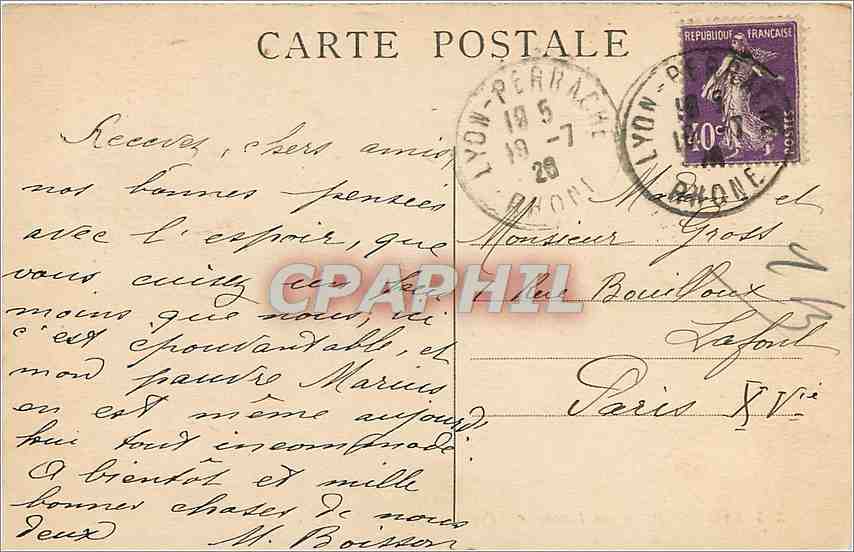 CARTE POSTALE
REPUBLIQUE FRANÇAISE
40c
POSTES
LYON-PERRACHE
19 5
19 -7
26
RHONE
LYON-PERRACHE
RHONE
Recevez, chers amis,
nos bonnes pensées
avec l'espoir, que
vous cuisez un peu
moins que nous, ici
c'est épouvantable, et
mon pauvre Marius
en est même aujourd'
hui tout incommodé.
A bientôt et mille
bonnes choses de nous
deux M. Boisson
Madame et
Monsieur Gross
7 Rue Bouilloux
Lafont
Paris XVie
CPAPHIL